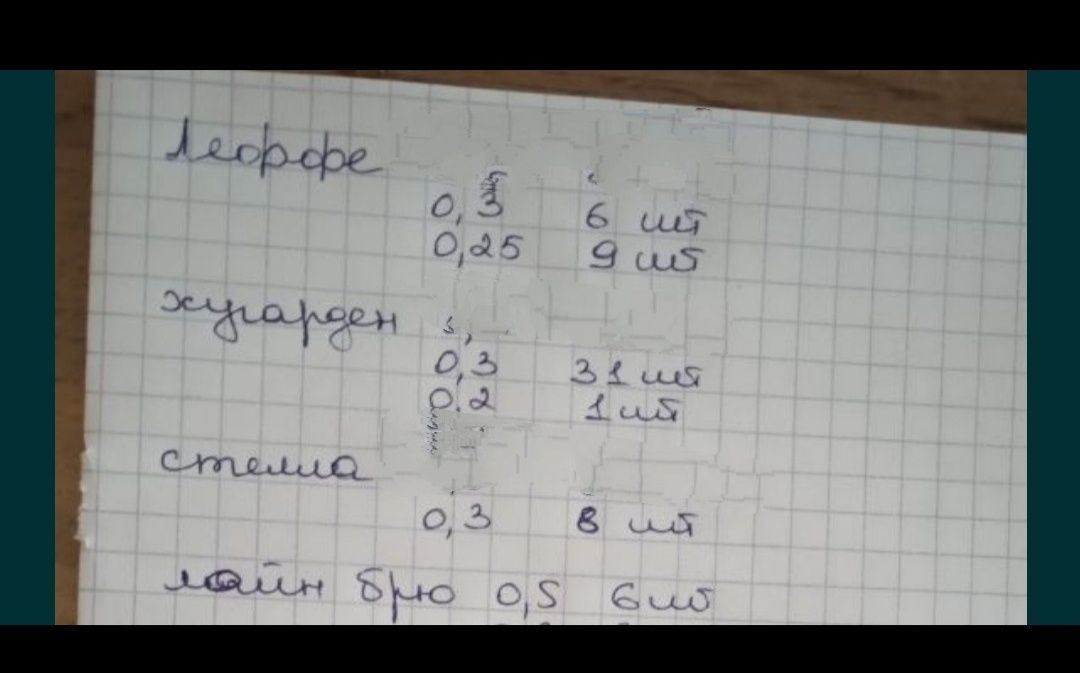 Леффе
0,3 6 шт
0,25 9 шт
хугарден
0,3 31 шт
0,2 1 шт
стелла
0,3 8 шт
лайн брю 0,5 6 шт